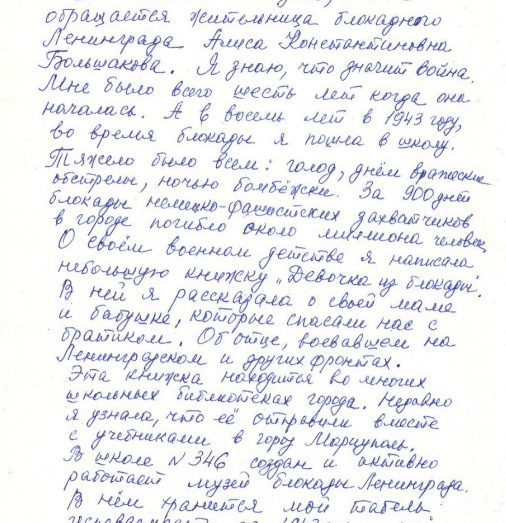 обращается жительница блокадного
Ленинграда Алиса Константиновна
Большакова. Я знаю, что значит война.
Мне было всего шесть лет когда она
началась. А в восемь лет в 1943 году,
во время блокады я пошла в школу.
Тяжело было всем: голод, днём вражеские
обстрелы, ночью бомбёжки. За 900 дней
блокады немецко-фашистских захватчиков
в городе погибло около миллиона человек
О своём военном детстве я написала
небольшую книжку „Девочка из блокады".
В ней я рассказала о своей маме
и бабушке, которые спасали нас с
братиком. Об отце, воевавшем на
Ленинградском и других фронтах.
Эта книжка находится во многих
школьных библиотеках города. Недавно
я узнала, что её отправили вместе
с учебниками в город Мариуполь.
В школе N 346 создан и активно
работает музей блокады Ленинграда.
В нём хранится мой табель